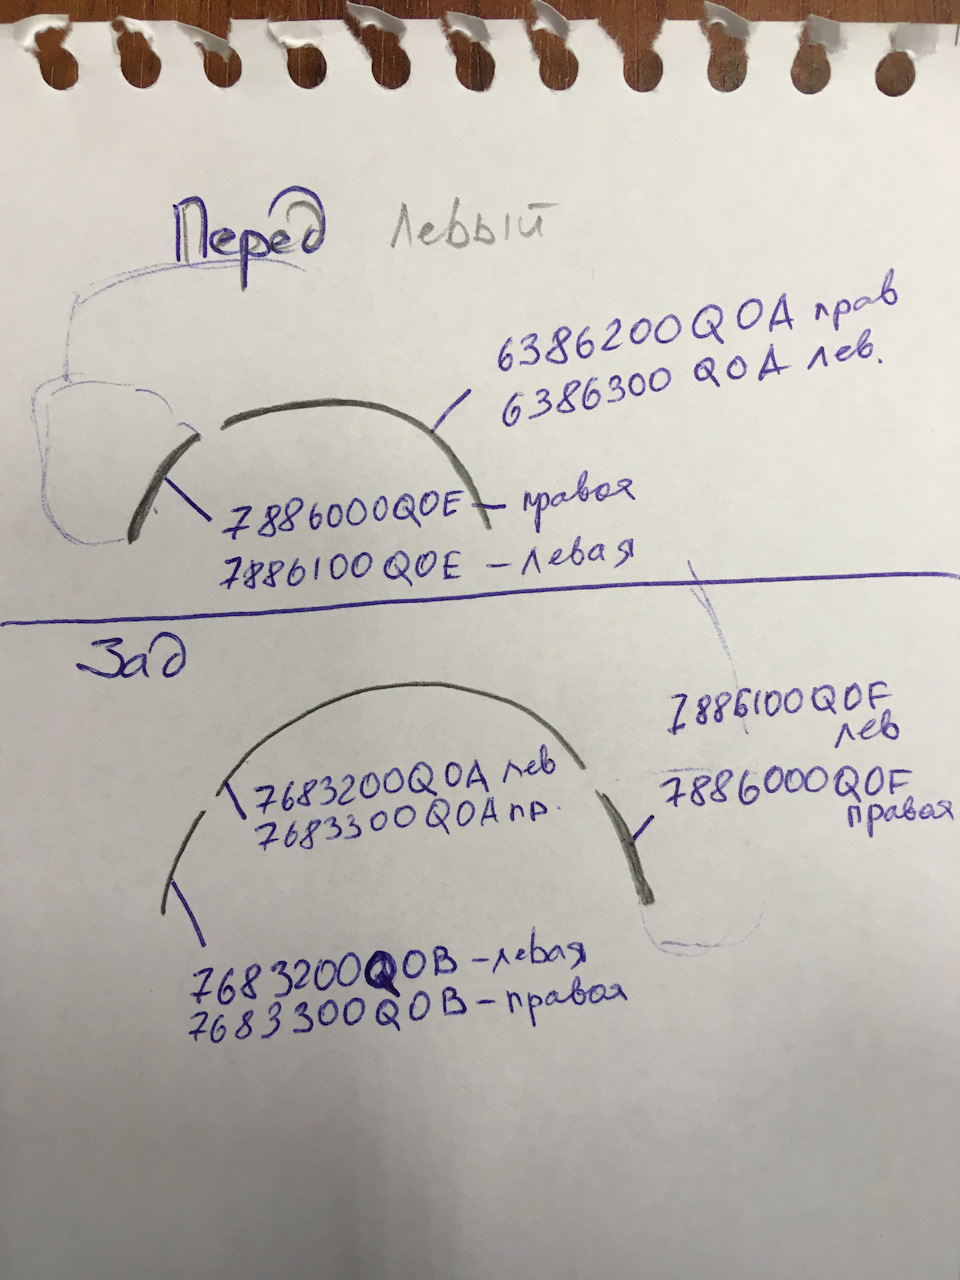 Перед левый
6386200Q0A прав
6386300 Q0A лев.
7886000Q0E - правая
7886100Q0E - левая
Зад
7886100Q0F
лев
7886000Q0F
правая
7683200Q0A лев
7683300Q0A пр.
7683200Q0B - левая
7683300Q0B - правая